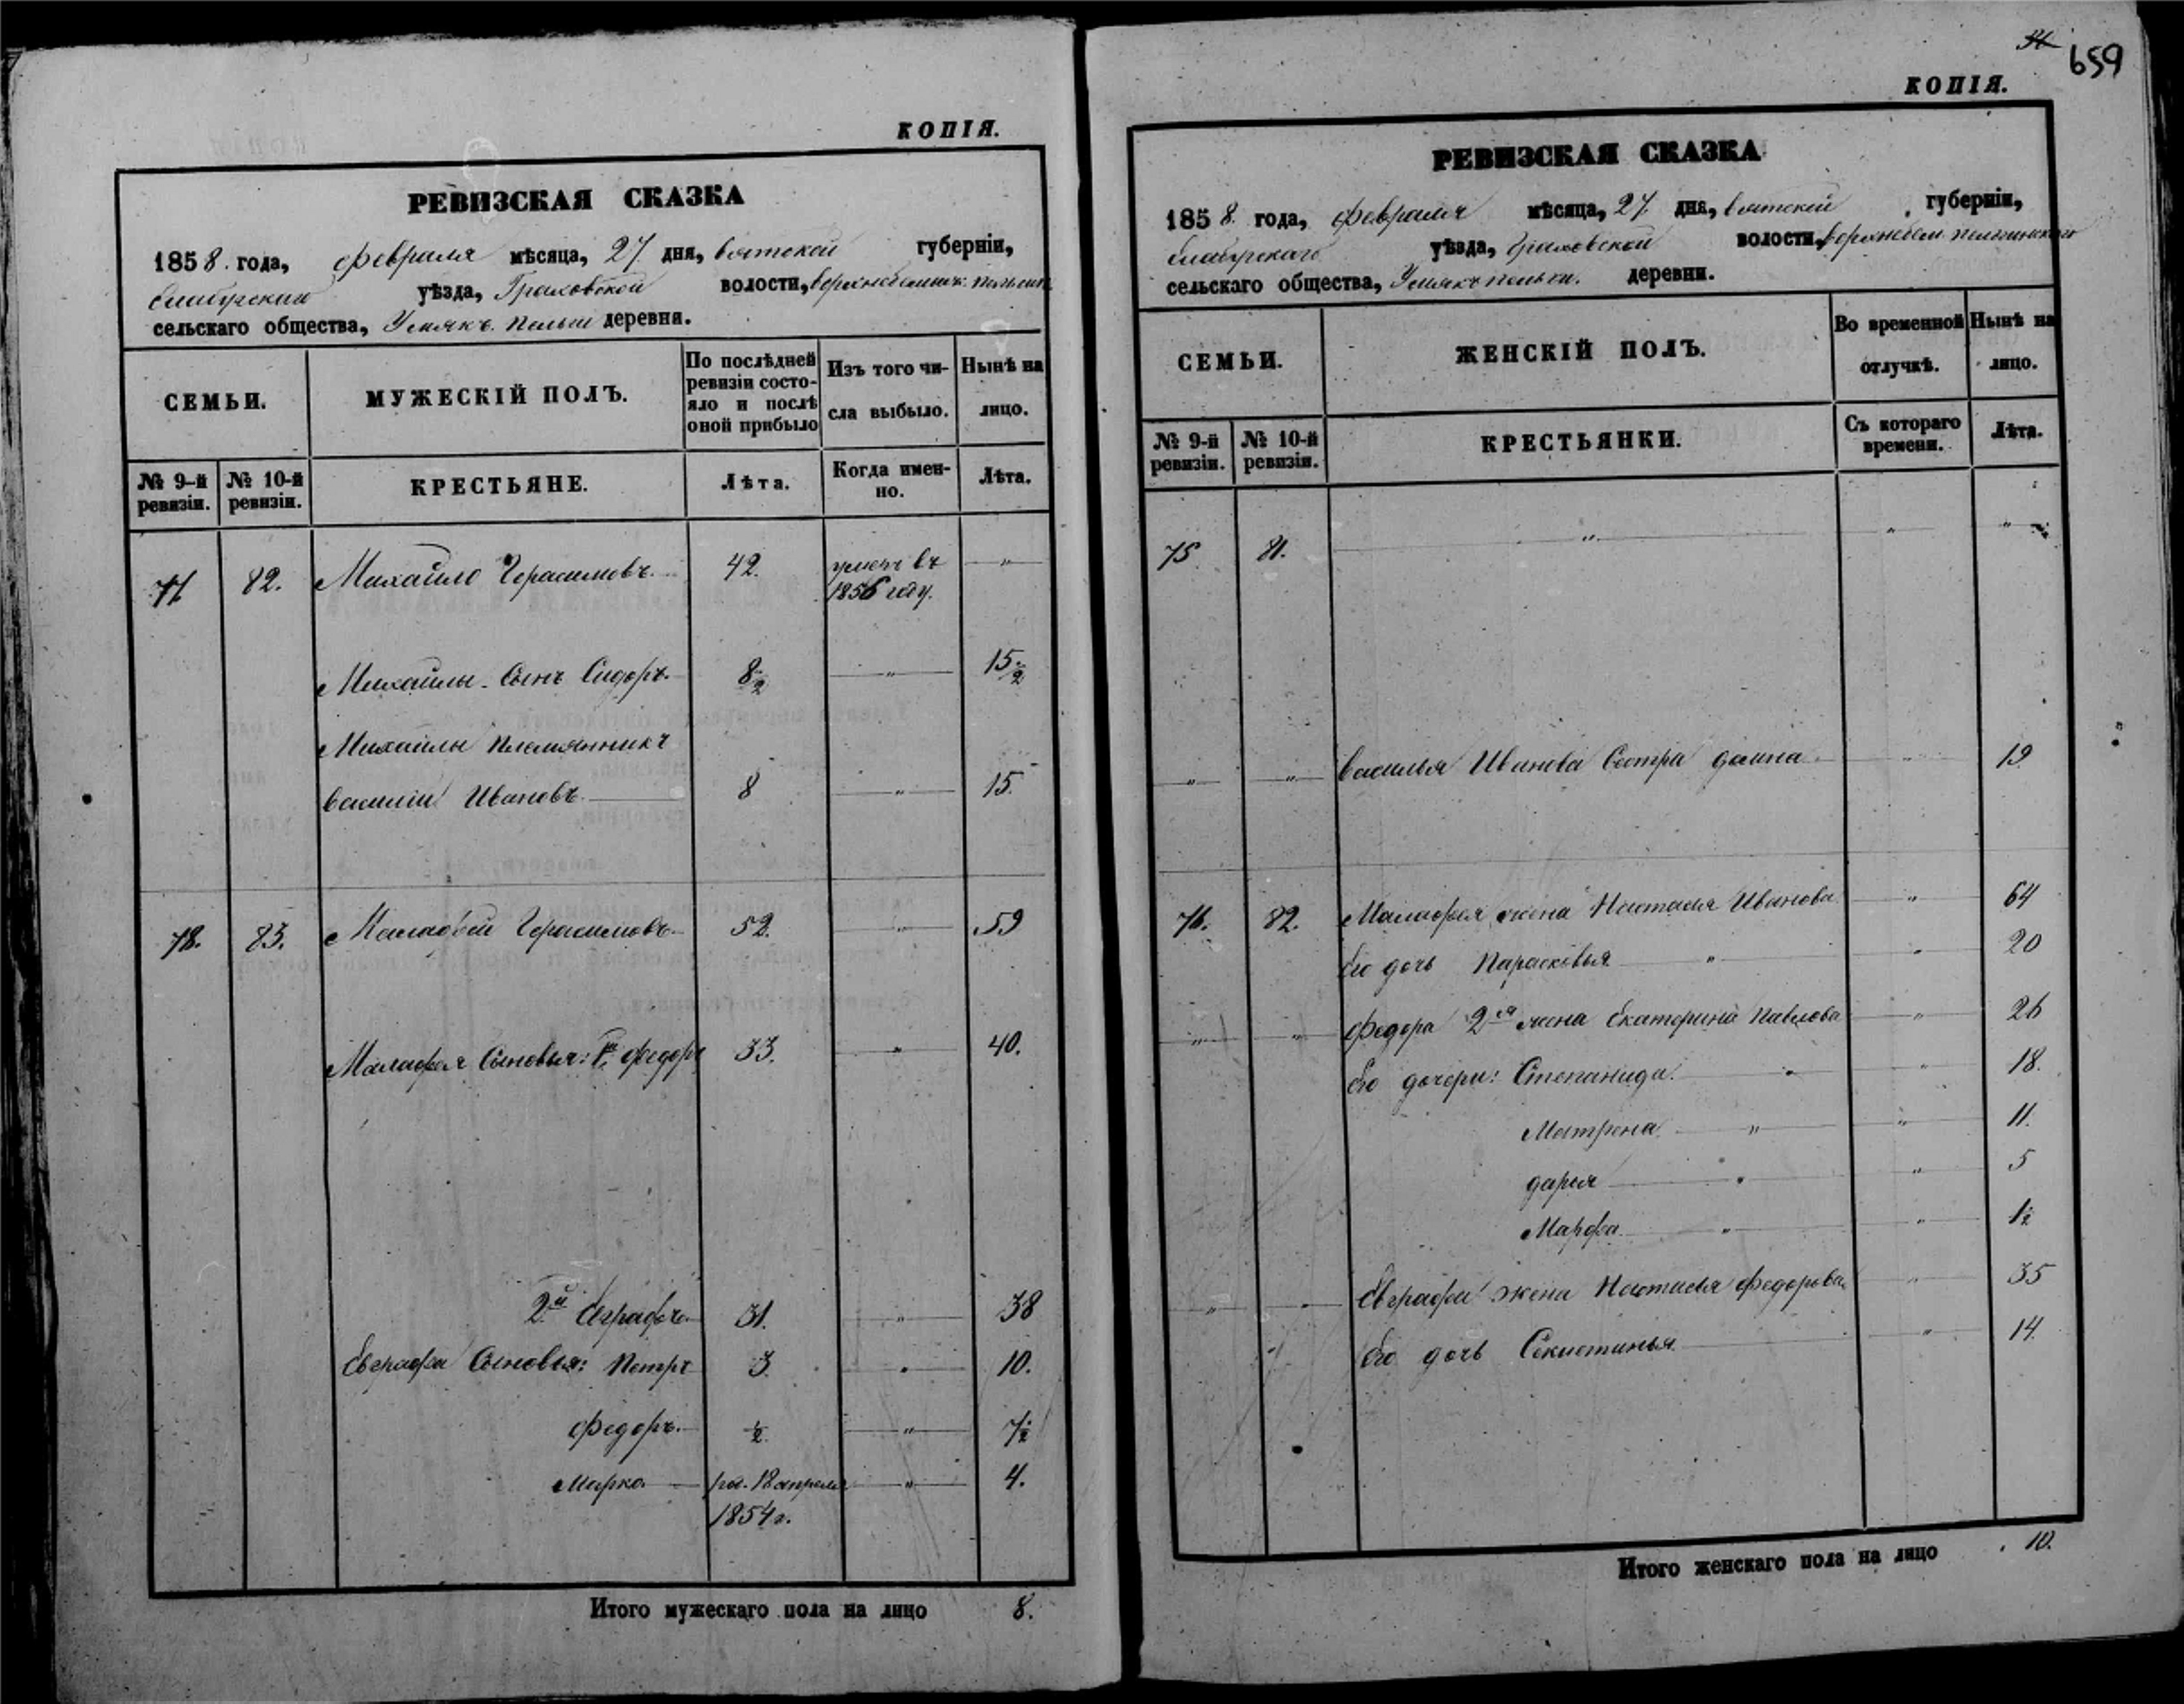 КОПІЯ.
РЕВИЗСКАЯ СКАЗКА
1858. года, февраля мѣсяца, 27 дня, вятской губерніи,
елабугскаго уѣзда, Граховской волости,
сельскаго общества, Умякъ пельги деревни.
СЕМЬИ.
МУЖЕСКІЙ ПОЛЪ.
По послѣдней ревизіи состояло и послѣ оной прибыло
Изъ того числа выбыло.
Нынѣ на лицо.
№ 9-й ревизіи.
№ 10-й ревизіи.
КРЕСТЬЯНЕ.
Лѣта.
Когда именно.
Лѣта.
82. Михайло Герасимовъ. 42. умеръ въ "
1856 году.
Михайлы Сынъ Сидоръ. 8 1/2 " 15 1/2
Михайлы племянникъ
василій Ивановъ. 8 " 15.
78. 83. Малафей Герасимовъ. 52. " 59
Малафея Сыновья: 1й федоръ 33. " 40.
2й Евграфъ. 31. " 38
Евграфа Сыновья: Петръ 3. " 10.
федоръ. 1/2 " 7 1/2
Марко. ро. 18 апреля " 4.
1854 г.
Итого мужескаго пола на лицо 8.
659
КОПІЯ.
РЕВИЗСКАЯ СКАЗКА
1858. года, февраля мѣсяца, 27 дня, вятской губерніи,
елабугскаго уѣзда, Граховской волости,
сельскаго общества, Умякъ пельги. деревни.
СЕМЬИ.
ЖЕНСКІЙ ПОЛЪ.
Во временной отлучкѣ.
Нынѣ на лицо.
№ 9-й ревизіи.
№ 10-й ревизіи.
КРЕСТЬЯНКИ.
Съ котораго времени.
Лѣта.
75. 81. " " "
" " василья Иванова Сестра домна " 19
76. 82. Малафея жена Настасья Иванова " 64
его дочь Парасковья " " 20
" " федора 2я жена Екатерина Павлова " 26
его дочери: Степанида. " " 18.
Матрена. " " 11.
дарья " " 5
Марфа " " 1/2
" " Евграфа жена Настасья федорова " 35
его дочь Секлетинья " 14.
Итого женскаго пола на лицо 10.